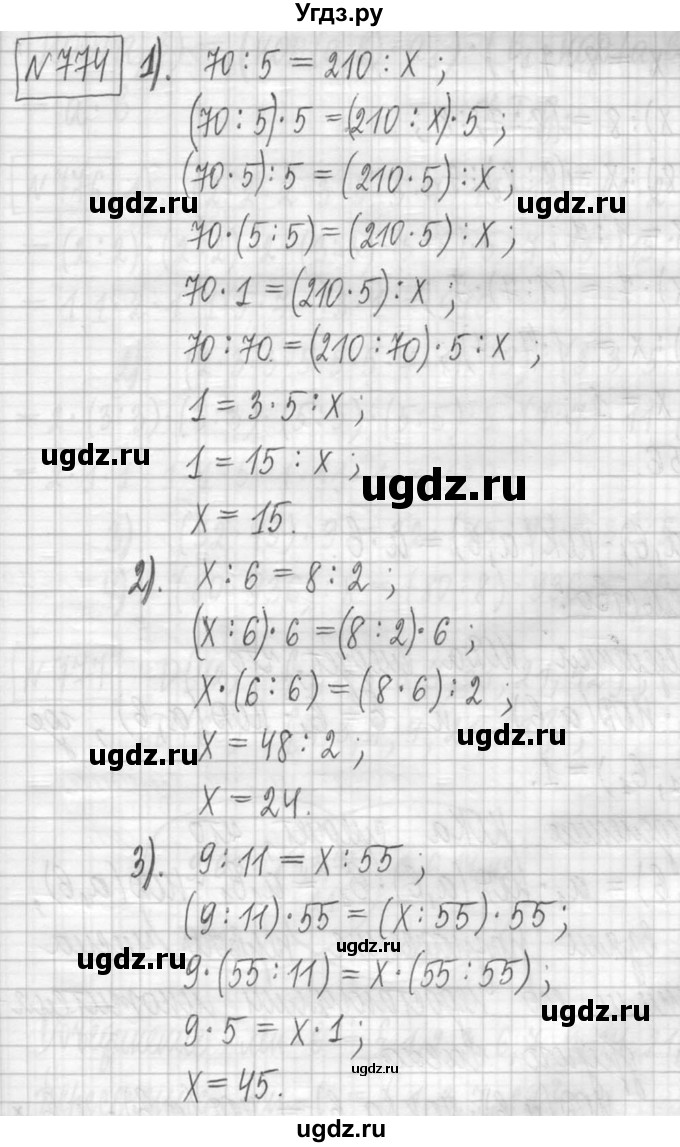 Угдз.ру
N 774 1). 70 : 5 = 210 : x ;
(70 : 5) · 5 = (210 : x) · 5 ;
(70 · 5) : 5 = (210 · 5) : x ;
ugdz.ru ugdz.ru
70 · (5 : 5) = (210 · 5) : x ;
70 · 1 = (210 · 5) : x ;
70 : 70 = (210 : 70) · 5 : x ;
1 = 3 · 5 : x ;
ugdz.ru
1 = 15 : x ;
ugdz.ru
x = 15.
2). x : 6 = 8 : 2 ;
(x : 6) · 6 = (8 : 2) · 6 ;
x · (6 : 6) = (8 · 6) : 2 ;
ugdz.ru
x = 48 : 2 ;
ugdz.ru
x = 24.
3). 9 : 11 = x : 55 ;
(9 : 11) · 55 = (x : 55) · 55 ;
ugdz.ru
ugdz.ru
9 · (55 : 11) = x · (55 : 55) ;
ugdz.ru
9 · 5 = x · 1 ;
ugdz.ru
x = 45.
ugdz.ru